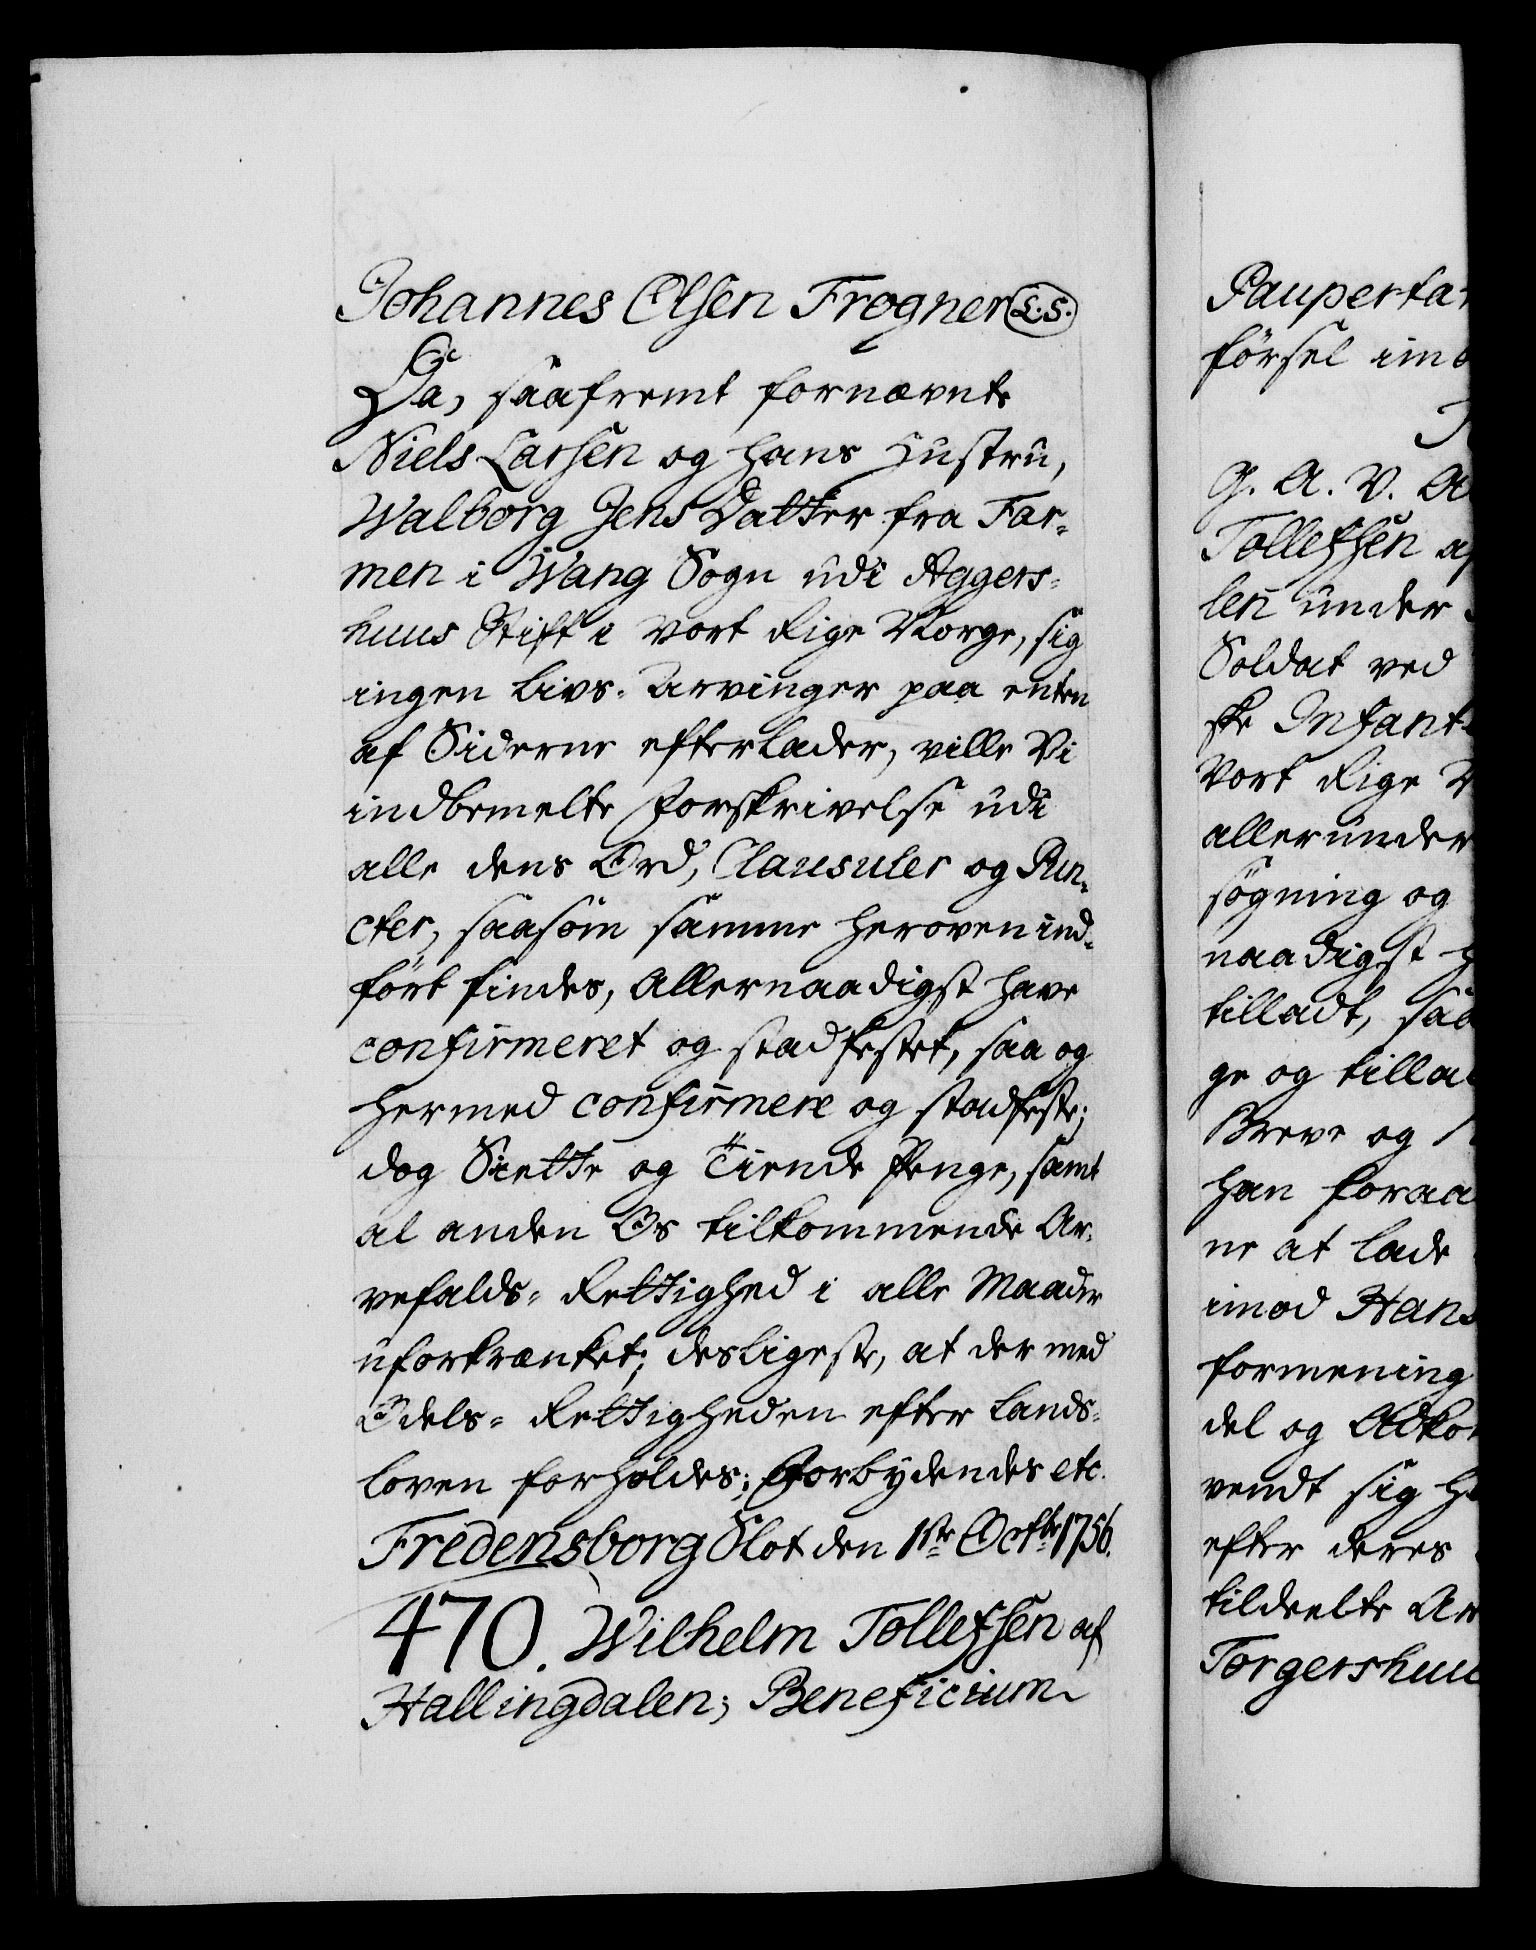 Johannes Olsen Frogner (L.S.)
Da, saafremt fornævnte
Niels Larsen og hans Hustru,
Walborg Jens Datter fra Far-
men i Wang Sogn udi Aggers-
huus Stift i vort Rige Norge, sig
ingen Livs-Arvinger paa enten
af Siderne efterlader, ville Vi
indbemelte Forskrivelse udi
alle dens Ord, Clausuler og Pun-
cter, saasom samme heroven ind-
ført findes, Allernaadigst have
confirmeret og stadfestet, saa og
hermed confirmere og stadfeste;
dog Siette og Tiende Penge, samt
al anden Os tilkommende Ar-
vefalds-Rettighed i alle Maader
uforkrænket; desligeste, at der med
Odels-Rettigheden efter Lands-
loven forholdes; Forbydendes etc.
Fredensborg Slot den 1ste Octbr 1756.
470. Wilhelm Tollefsen af
Hallingdalen; Beneficium
Pauperta
førsel imo
G. A. V. A
Tollefsen af
len under
Soldat ved
ske Infant
Vort Rige N
allerunder
søgning og
naadigst h
tilladt, saa
ge og tilla
Breve og
han foraa
ne at lade
imod Hans
formening
del og Adkom
vendt sig h
efter deres
tildeelte Ar
Torgershuu